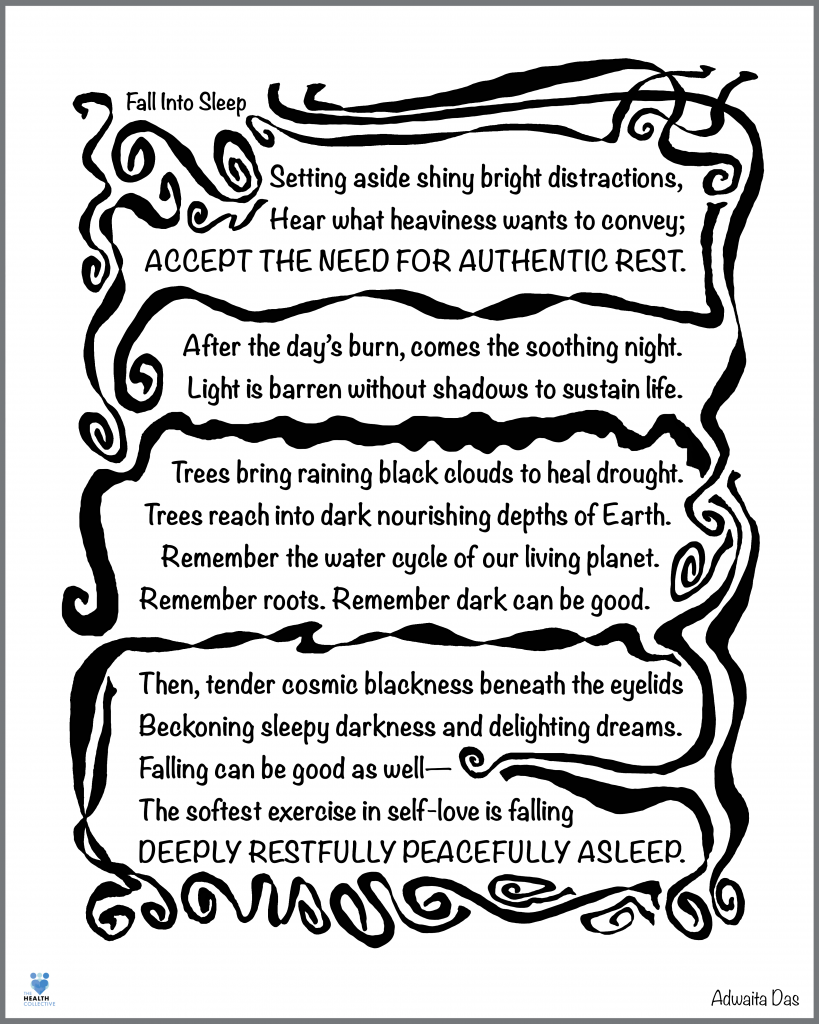 Fall Into Sleep
Setting aside shiny bright distractions,
Hear what heaviness wants to convey;
ACCEPT THE NEED FOR AUTHENTIC REST.
After the day's burn, comes the soothing night.
Light is barren without shadows to sustain life.
Trees bring raining black clouds to heal drought.
Trees reach into dark nourishing depths of Earth.
Remember the water cycle of our living planet.
Remember roots. Remember dark can be good.
Then, tender cosmic blackness beneath the eyelids
Beckoning sleepy darkness and delighting dreams.
Falling can be good as well—
The softest exercise in self-love is falling
DEEPLY RESTFULLY PEACEFULLY ASLEEP.
THE
HEALTH
COLLECTIVE
Adwaita Das